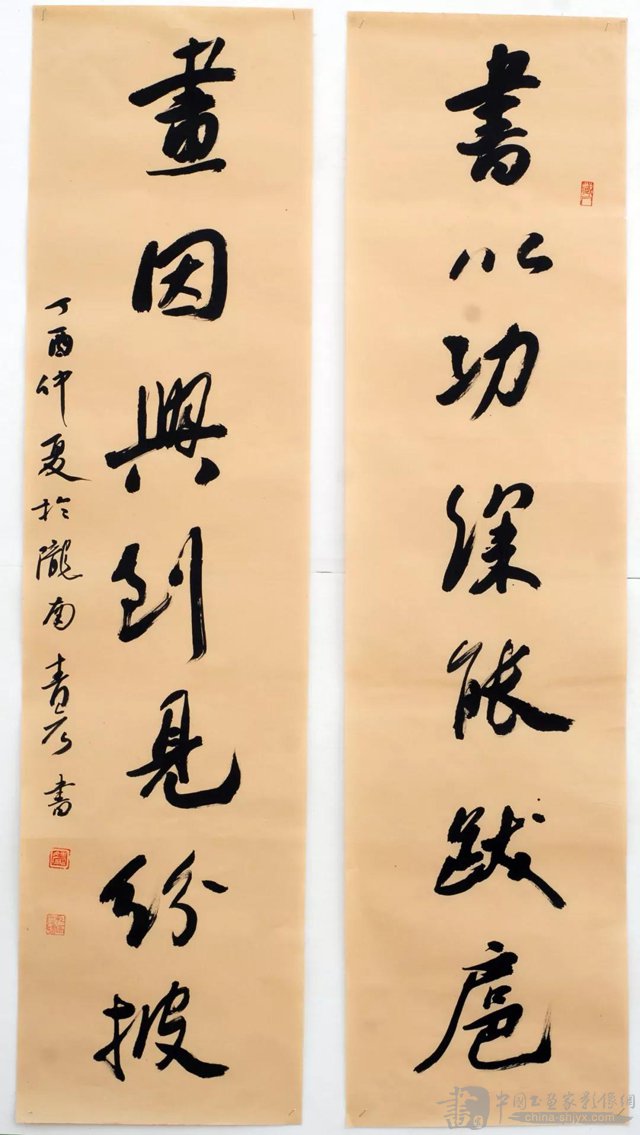 書以功深能跋扈
畫因興到見紛披
丁酉仲夏於隴南青彥書
中國書畫家影像網
china-snjyx.com